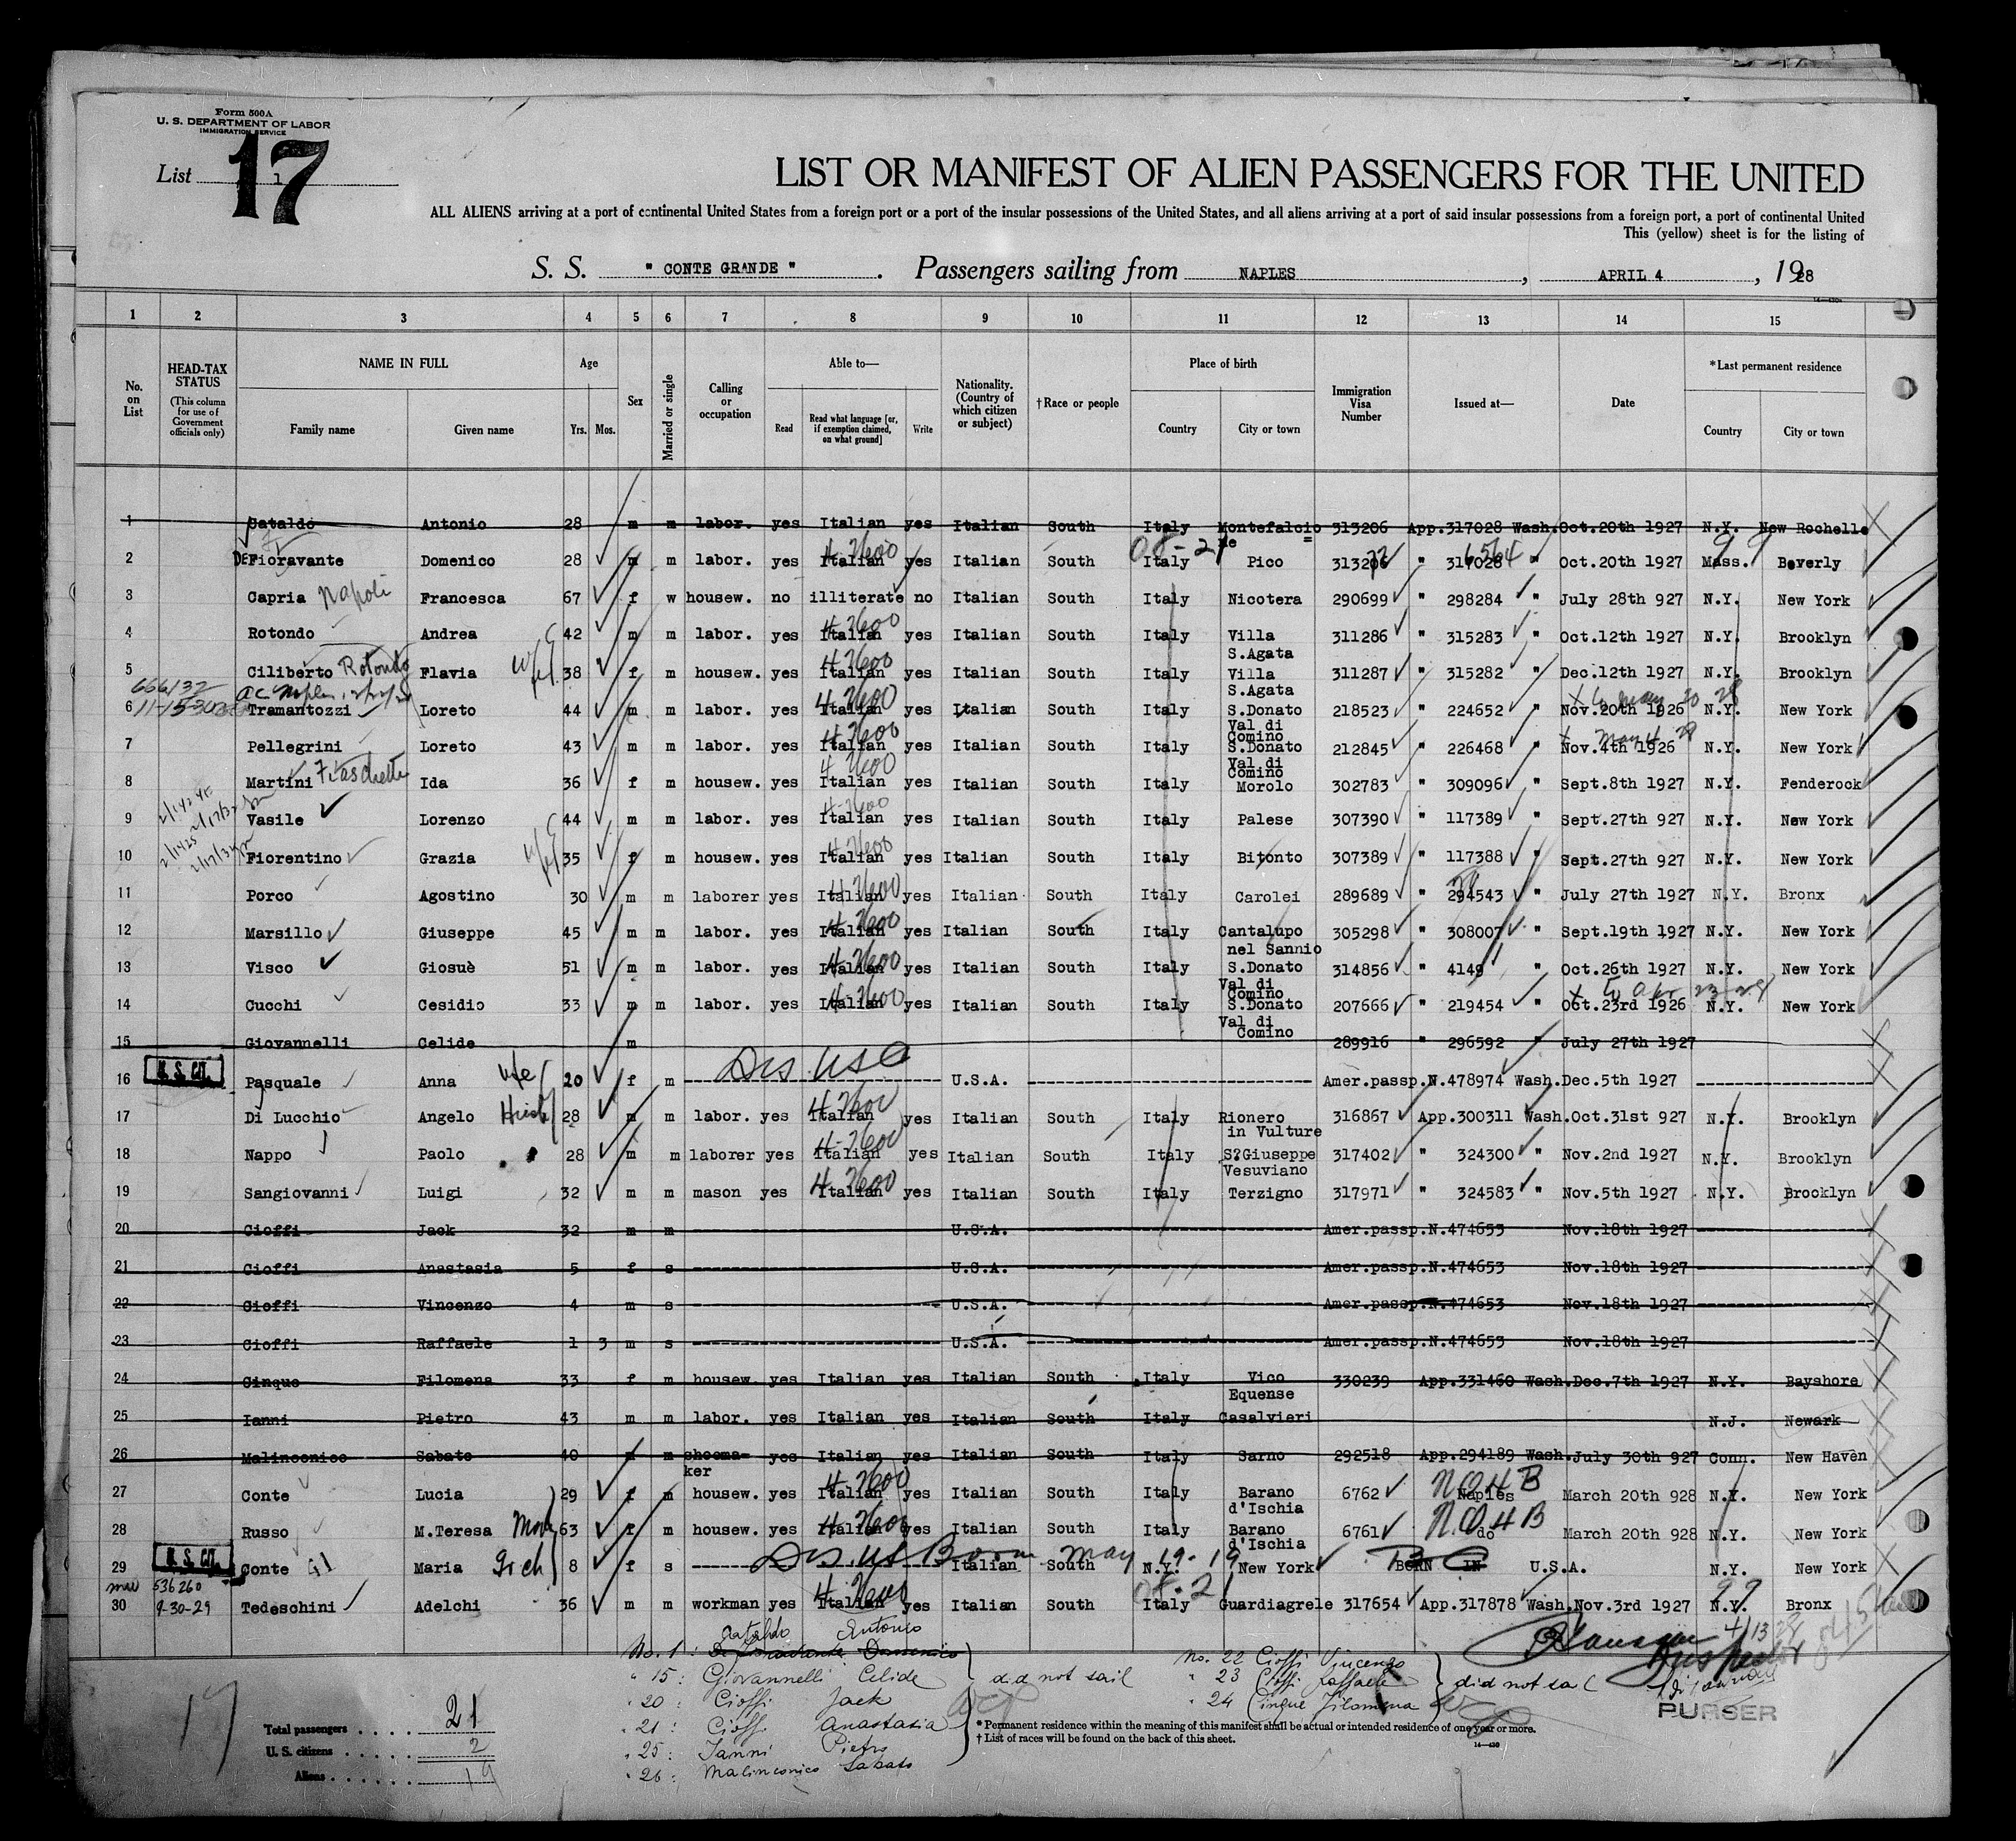 Form 500A
U. S. DEPARTMENT OF LABOR
IMMIGRATION SERVICE
List 1
17
LIST OR MANIFEST OF ALIEN PASSENGERS FOR THE UNITED
ALL ALIENS arriving at a port of continental United States from a foreign port or a port of the insular possessions of the United States, and all aliens arriving at a port of said insular possessions from a foreign port, a port of continental United
This (yellow) sheet is for the listing of
S. S. " CONTE GRANDE " . Passengers sailing from NAPLES , APRIL 4 , 1928
1 2 3 4 5 6 7 8 9 10 11 12 13 14 15
No. on List HEAD-TAX STATUS (This column for use of Government officials only) NAME IN FULL Family name Given name Age Yrs. Mos. Sex Married or single Calling or occupation Able to— Read Read what language [or, if exemption claimed, on what ground] Write Nationality. (Country of which citizen or subject) †Race or people Place of birth Country City or town Immigration Visa Number Issued at— Date *Last permanent residence Country City or town
1 Cataldo Antonio 28 m m labor. yes Italian yes Italian South Italy Montefalcio ne 313206 App.317028 Wash. Oct.20th 1927 N.Y. New Rochelle
2 DeFioravante Domenico 28 m m labor. yes Italian yes Italian South Italy Pico " " Oct.20th 1927 Mass. Beverly
3 Capria Napoli Francesca 67 f w housew. no illiterate no Italian South Italy Nicotera 290699 " 298284 " July 28th 927 N.Y. New York
4 Rotondo Andrea 42 m m labor. yes Italian yes Italian South Italy Villa S.Agata 311286 " 315283 " Oct.12th 1927 N.Y. Brooklyn
5 Ciliberto Rotondo Flavia 38 f m housew. yes Italian yes Italian South Italy Villa S.Agata 311287 " 315282 " Dec.12th 1927 N.Y. Brooklyn
6 Tramantozzi Loreto 44 m m labor. yes Italian yes Italian South Italy S.Donato Val di Comino 218523 " 224652 " Nov.20th 1926 N.Y. New York
7 Pellegrini Loreto 43 m m labor. yes Italian yes Italian South Italy S.Donato Val di Comino 212845 " 226468 " Nov.4th 1926 N.Y. New York
8 Martini Ida 36 f m housew. yes Italian yes Italian South Italy Morolo 302783 " 309096 " Sept.8th 1927 N.Y. Fenderock
9 Vasile Lorenzo 44 m m labor. yes Italian yes Italian South Italy Palese 307390 " 117389 " Sept.27th 927 N.Y. New York
10 Fiorentino Grazia 35 f m housew. yes Italian yes Italian South Italy Bitonto 307389 " 117388 " Sept.27th 927 N.Y. New York
11 Porco Agostino 30 m m laborer yes Italian yes Italian South Italy Carolei 289689 " 294543 " July 27th 1927 N.Y. Bronx
12 Marsillo Giuseppe 45 m m labor. yes Italian yes Italian South Italy Cantalupo nel Sannio 305298 " 308007 " Sept.19th 1927 N.Y. New York
13 Visco Giosuè 51 m m labor. yes Italian yes Italian South Italy S.Donato Val di Comino 314856 " 4149 " Oct.26th 1927 N.Y. New York
14 Cucchi Cesidio 33 m m labor. yes Italian yes Italian South Italy S.Donato Val di Comino 207666 " 219454 " Oct.23rd 1926 N.Y. New York
15 Giovannelli Celide m 289916 " 296592 " July 27th 1927
16 U. S. CIT. Pasquale Anna 20 f m U.S.A. Amer.passp.N.478974 Wash. Dec.5th 1927
17 Di Lucchio Angelo 28 m m labor. yes Italian yes Italian South Italy Rionero in Vulture 316867 App.300311 Wash. Oct.31st 927 N.Y. Brooklyn
18 Nappo Paolo 28 m m laborer yes Italian yes Italian South Italy S.Giuseppe Vesuviano 317402 " 324300 " Nov.2nd 1927 N.Y. Brooklyn
19 Sangiovanni Luigi 32 m m mason yes Italian yes Italian South Italy Terzigno 317971 " 324583 " Nov.5th 1927 N.Y. Brooklyn
20 Cioffi Jack 32 m m U.S.A. Amer.passp.N.474653 Nov.18th 1927
21 Cioffi Anastasia 5 f s U.S.A. Amer.passp.N.474653 Nov.18th 1927
22 Cioffi Vincenzo 4 m s U.S.A. Amer.passp.N.474653 Nov.18th 1927
23 Cioffi Raffaele 1 3 m s U.S.A. Amer.passp.N.474653 Nov.18th 1927
24 Cinque Filomena 33 f m housew. yes Italian yes Italian South Italy Vico Equense 330239 App.331460 Wash. Dec.7th 1927 N.Y. Bayshore
25 Ianni Pietro 43 m m labor. yes Italian yes Italian South Italy Casalvieri N.J. Newark
26 Malinconico Sabato 40 m m shoemaker yes Italian yes Italian South Italy Sarno 292518 App.294189 Wash. July 30th 927 Conn. New Haven
27 Conte Lucia 29 f m housew. yes Italian yes Italian South Italy Barano d'Ischia 6762 Naples March 20th 928 N.Y. New York
28 Russo M.Teresa 63 f m housew. yes Italian yes Italian South Italy Barano d'Ischia 6761 do March 20th 928 N.Y. New York
29 U. S. CIT. Conte Maria 8 f s Born May 19-19 Italian South N.Y. New York BORN IN U.S.A. N.Y. New York
30 Tedeschini Adelchi 36 m m workman yes Italian yes Italian South Italy Guardiagrele 317654 App.317878 Wash. Nov.3rd 1927 N.Y. Bronx
No. 1 : Cataldo Antonio
" 15 : Giovannelli Celide
" 20 : Cioffi Jack
" 21 : Cioffi Anastasia
" 25 : Ianni Pietro
" 26 : Malinconico Sabato
did not sail
No. 22 Cioffi Vincenzo
" 23 Cioffi Raffaele
" 24 Cinque Filomena
did not sail
4/13 28
Inspector
PURSER
17
Total passengers . . . . 21
U. S. citizens . . . . . 2
Aliens . . . . . . 19
* Permanent residence within the meaning of this manifest shall be actual or intended residence of one year or more.
† List of races will be found on the back of this sheet.